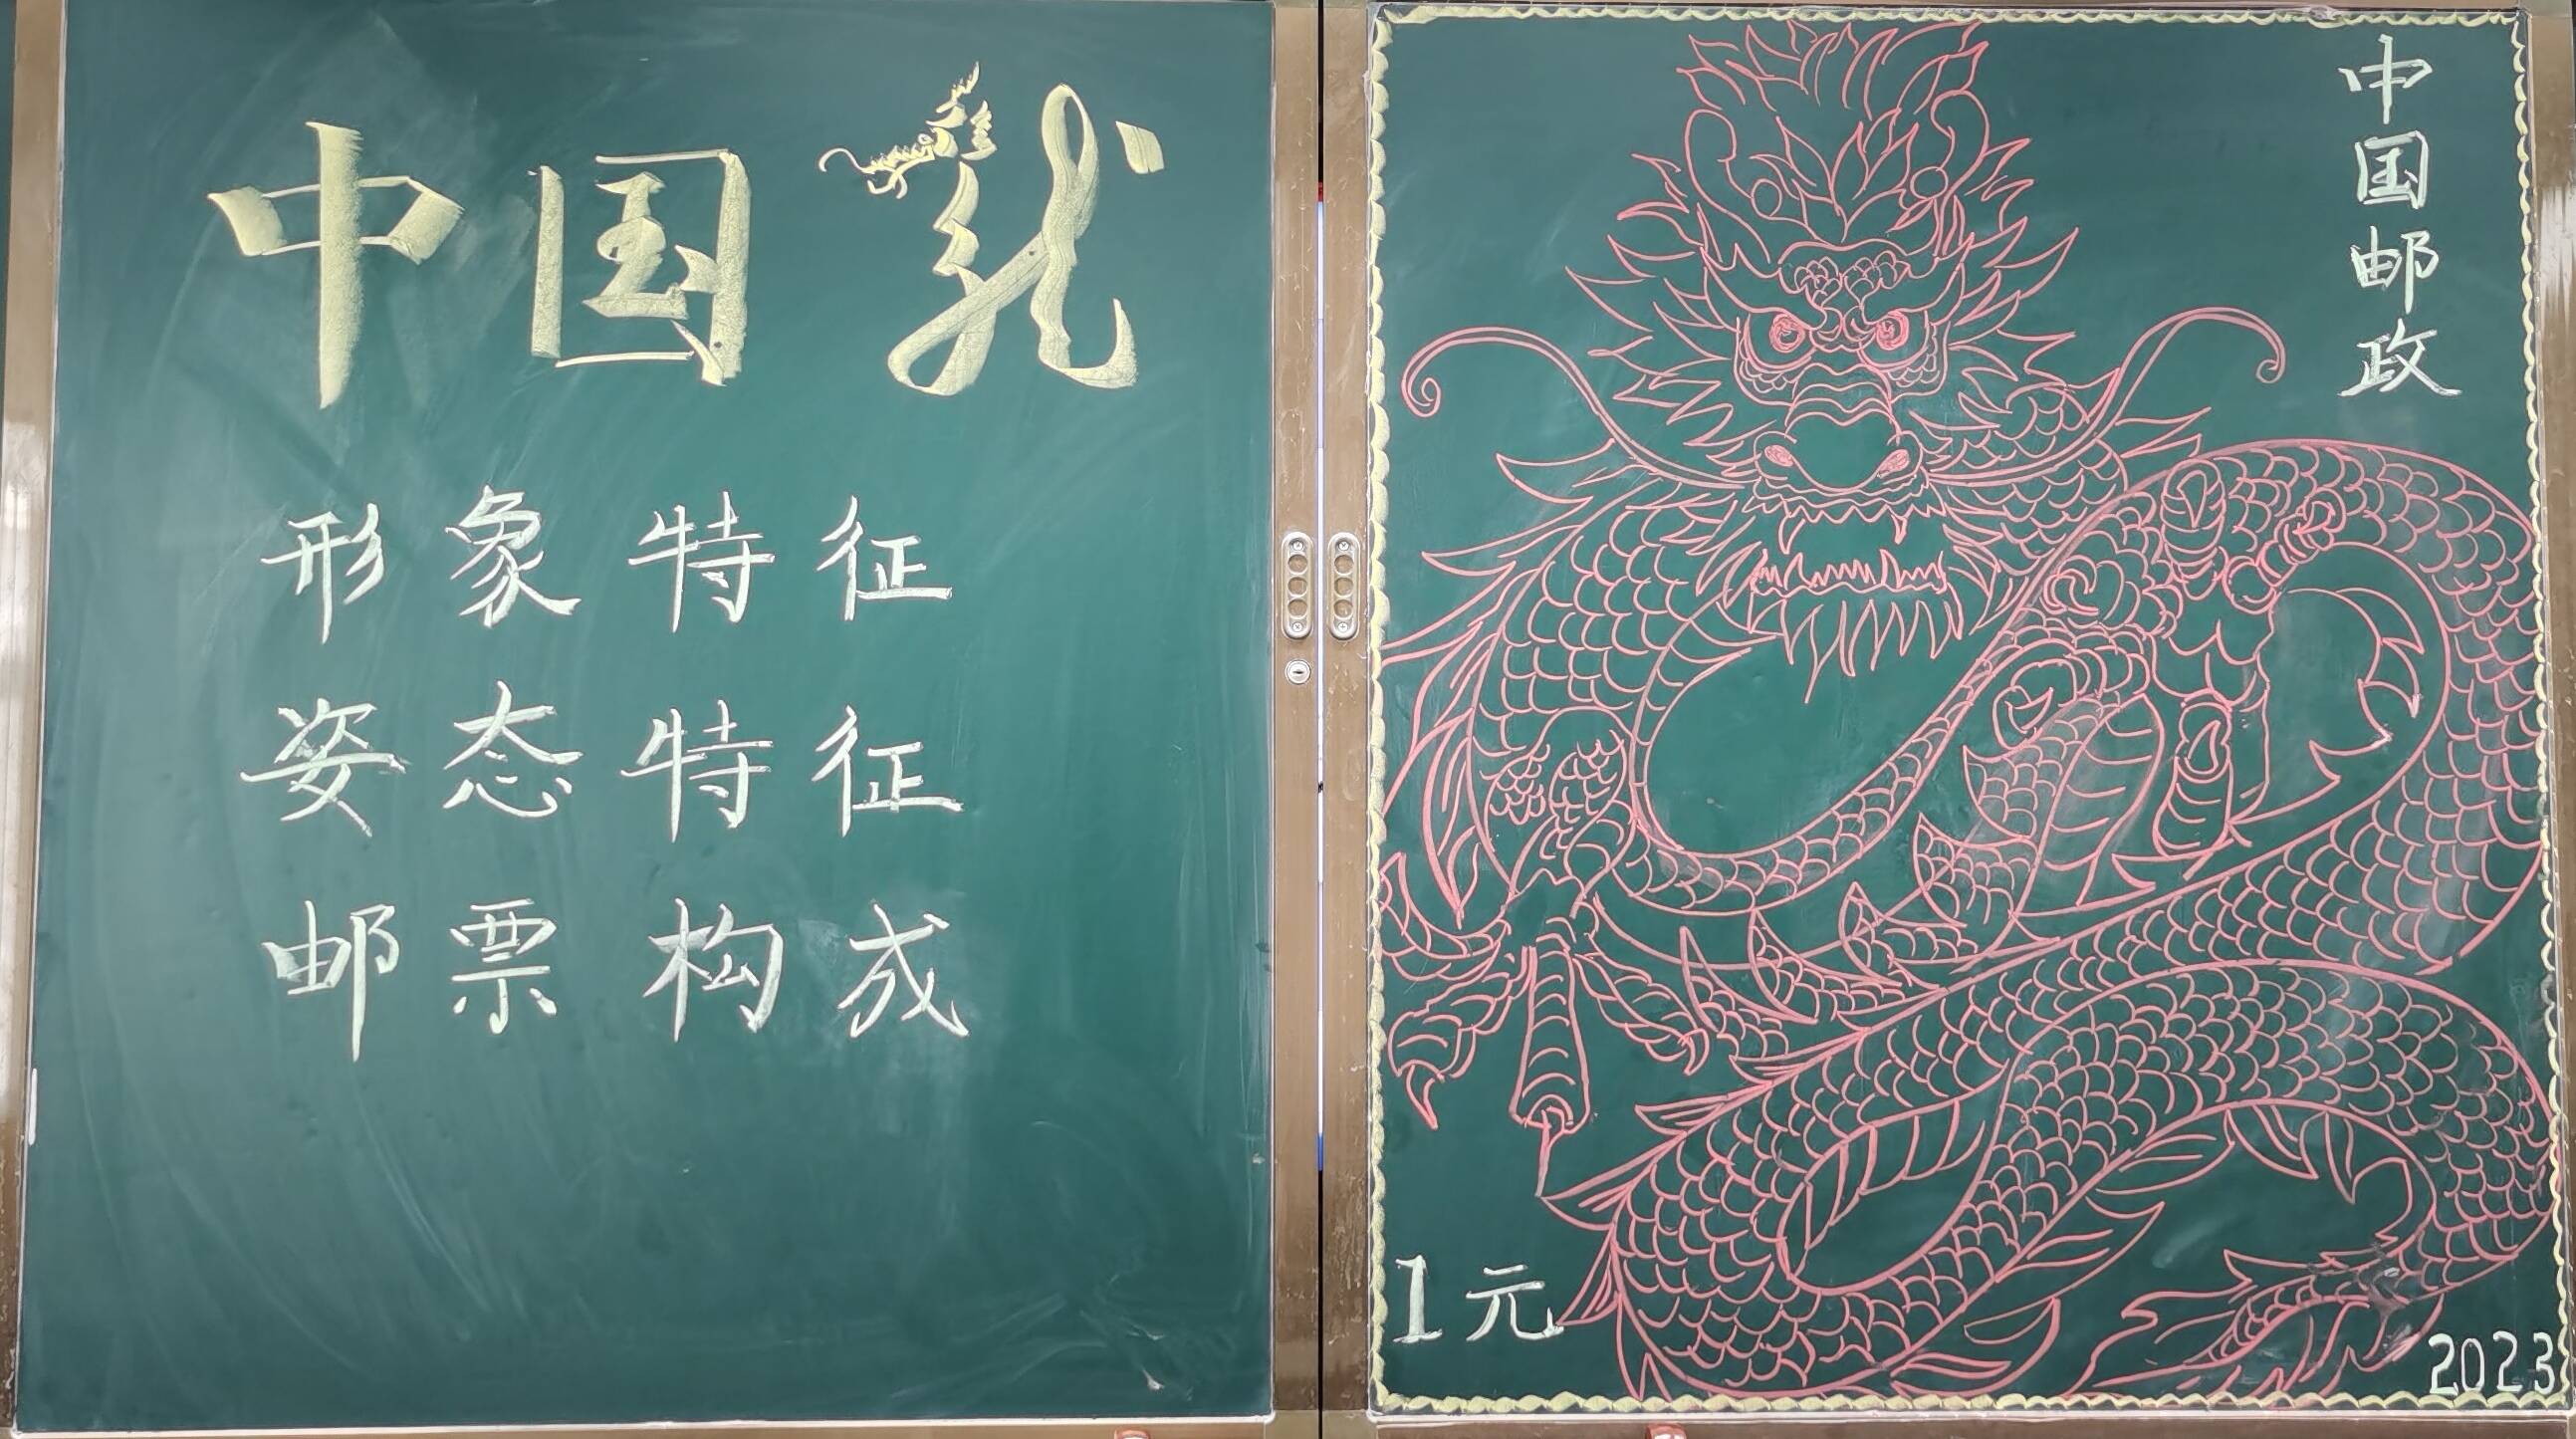 中国龙
形象特征
姿态特征
邮票构成
中国邮政
1元
2023